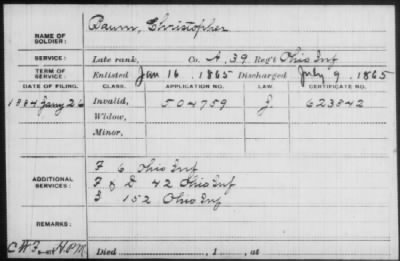 NAME OF SOLDIER: Baum, Christopher
SERVICE: Late rank, Co. A, 39 Reg't Ohio Inf
TERM OF SERVICE: Enlisted Jan 16, 1865 Discharged July 9, 1865
DATE OF FILING. CLASS. APPLICATION NO. LAW. CERTIFICATE NO.
1884 Jany 26 Invalid, 504759 J. 623842
Widow,
Minor,
ADDITIONAL SERVICES: F 6 Ohio Inf
F & D 42 Ohio Inf
152 Ohio Inf
REMARKS:
Died , 1 , at